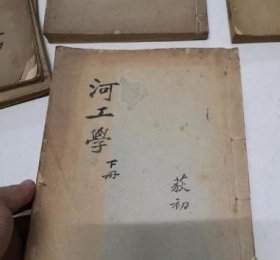 河工學
下冊
荻初